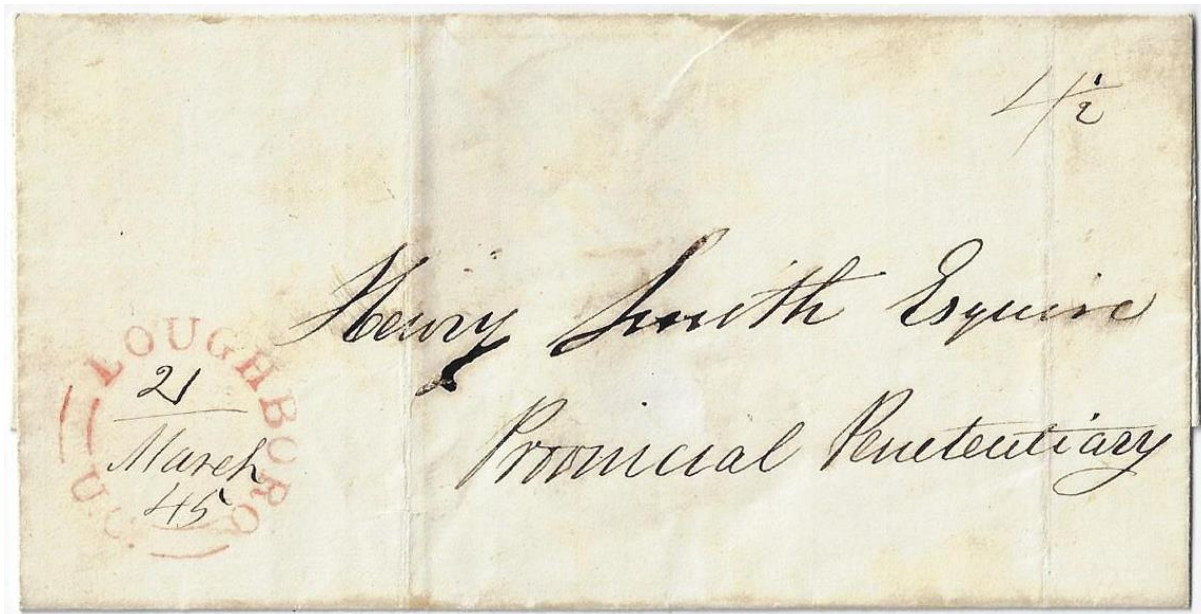 4 1/2
Henry Smith Esquire
Provincial Penetentiary
LOUGHBORO
U.C.
21
March
45